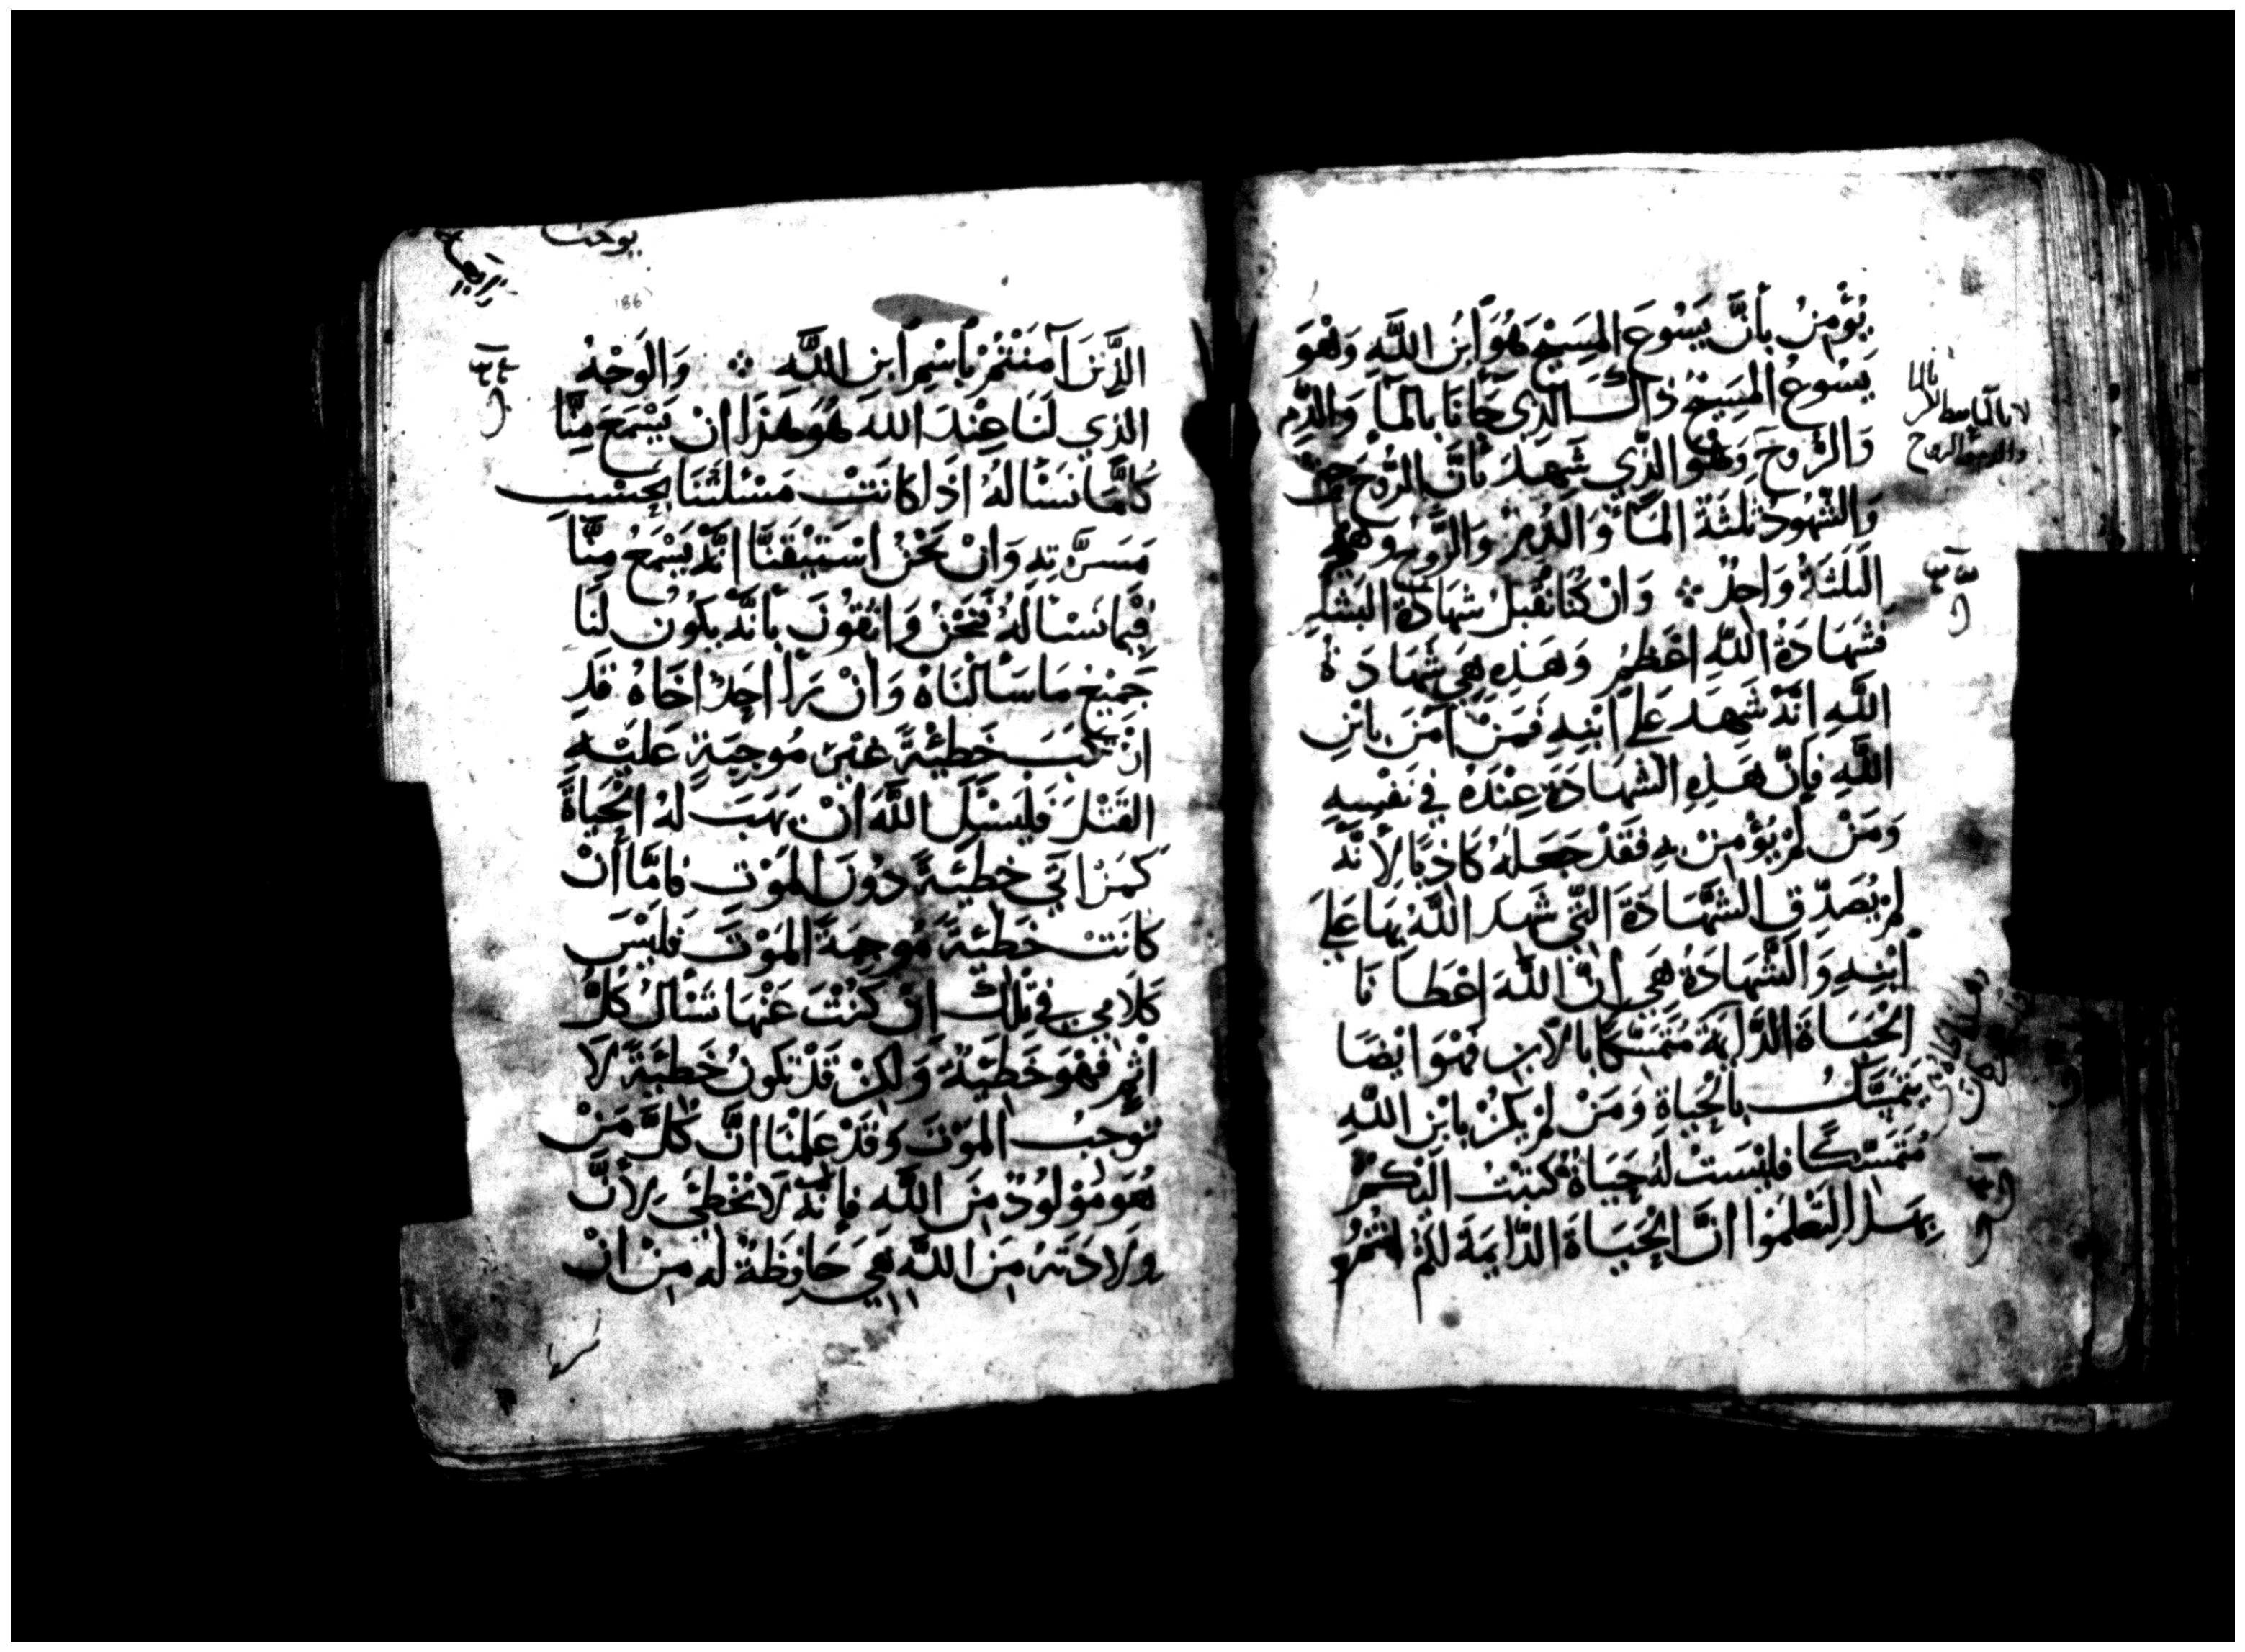 يُؤْمِنُ بأنَّ يَسُوعَ المَسِيْحَ هُوَ ابنُ اللَّهِ وَهْوَ
يَسُوعُ المَسِيْحُ ذاك الَّذِي جَانَا بالمَآ وَالدَّمِ
وَالرُّوحَ وَهْوَ الَّذِي شَهِدَ بأنَّ الرُّوحَ حَقٌّ
وَالشُّهُودُ ثلثَة المَآ وَالدَّمُ وَالرُّوحُ وَهَذِهِ
الثلثَةُ وَاحِدٌ ۞ وَانْ كُنا نَقْبَلُ شهَادَةَ البَشَرِ
فشَهَادَةُ اللَّهِ اعْظَمُ وَهَذِهِ هِيَ شَهَادَةُ
اللَّهِ انَّهُ شَهِدَ عَلى ابْنِهِ فَمَنْ آمَنَ بابْنِ
اللَّهِ فَإنّ هَذِهِ الشهَادَةَ عِنْدَهُ في نَفْسِهِ
وَمَنْ لَمْ يُؤْمِنْ بِهِ فَقَدْ جَعَلَهُ كَاذِبًا لأنَّهُ
لَمْ يُصَدِّق الشَّهَادَةَ الَّتِي شَهِدَ اللَّهُ بِهَا عَلَى
ابْنِهِ وَالشَّهَادَةُ هِيَ أنَّ اللَّهَ اعْطَانَا
الْحَيَاةَ الدَّايمَةَ مُتَمَسِّكًا بالابن فَهْوَ ايْضًا
يَتَمَسَّكُ بالْحَياةِ وَمَنْ لَمْ يَكُنْ بابْنِ اللَّهِ
مُتَمَسِّكًا فَليْسَتْ لَهُ حَيَاةٌ كَتبْتُ اليْكُمْ
بِهَذا لِتَعْلمُوا انَّ الْحَيَاةَ الدَّايمَةَ لكُمْ انْتُمُ
يوحنا
186
الَّذِينَ آمَنْتُمْ بأسْمِ ابنِ اللَّهِ ۞ وَالوَجْهُ
الَّذِي لَنَا عِنْدَ اللَّه هُوَ هَذَا انْ يَسْمَعَ مِنَّا
كُلَّمَا نَسْألهُ اذَا كانَتْ مَسْئَلَتُنَا بحَسَبِ
مَسَرَّتِهِ وَانْ نَحْنُ اسْتَيْقَنَّا انَّهُ يَسْمَعُ مِنَّا
فِيْمَا نَسْألهُ فَنَحْنُ وَاثِقُونَ بأنَّهُ يكُونُ لَنَا
جَمِيْعُ مَا سَألنَاهُ وَانْ رَأا احَدٌ اخَاهُ قَدِ
ارْتَكَبَ خَطِيْئَةً غَيْرَ مُوجِبَةٍ عَليْهِ
القَتْلَ فَليَسْئَلِ اللَّهَ انْ يَهَبَ لهُ الْحَيَاةَ
كَمَنْ اتَى خَطِيْئَةً دُونَ المَوْتِ فامَّا انْ
كانَتْ خَطِيْئَةً مُوجِبَةً المَوْتَ فليْسَ
كَلامِي في تلْكَ انْ كُنْتَ عَنْهَا تَسْألُ كُلُّ
اثْمٍ فَهْوَ خَطِيْئَةٌ وَلكِنْ قَدْ تكونُ خَطِيْئَةٌ لا
تُوجِبُ المَوْتَ وَقَدْ عَلِمْنَا انَّ كُلَّ مَنْ
هُوَ مَوْلُودٌ مِنَ اللَّهِ فإنَّهُ لا يُخْطِئ لأنَّ
وِلادَتَهُ مِنَ اللَّهِ هِيَ حَافِظَةٌ لَه مِنْ انْ